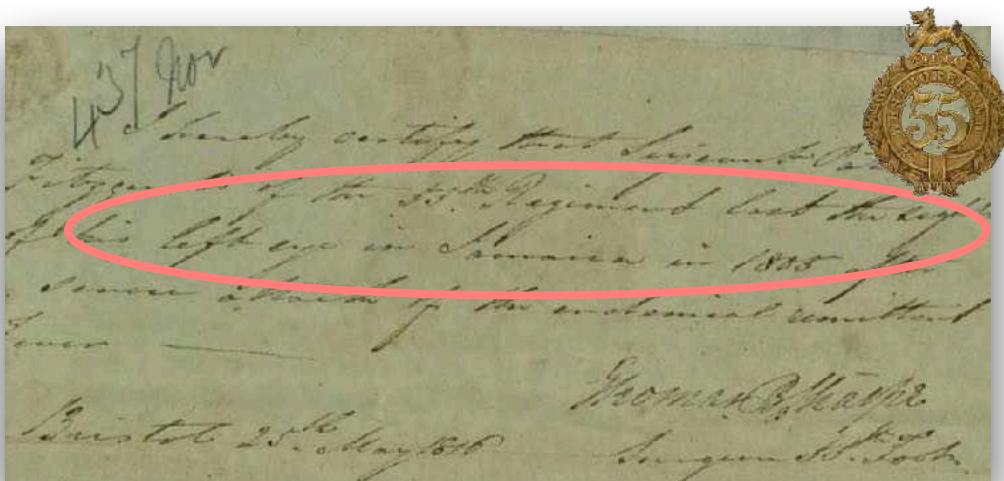 437 Nov
I hereby certify that Serjeant
Fitzgerald of the 55th Regiment lost the sight
of his left eye in Jamaica in 1805 after
a severe attack of the endemical remittent
Fever
Thomas B. Sharpe
Bristol 25th May 1816
Surgeon 55th Foot
55